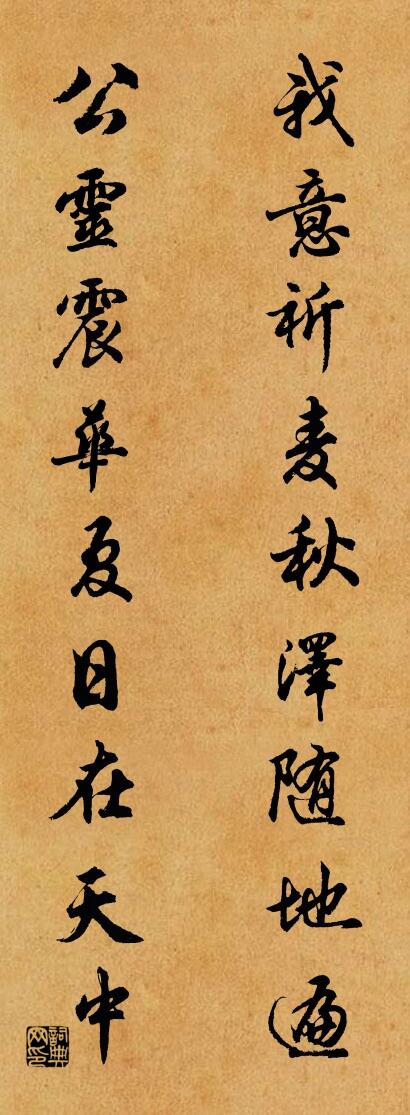 我意祈麦秋澤随地遍
公靈震華夏日在天中
詞典網印